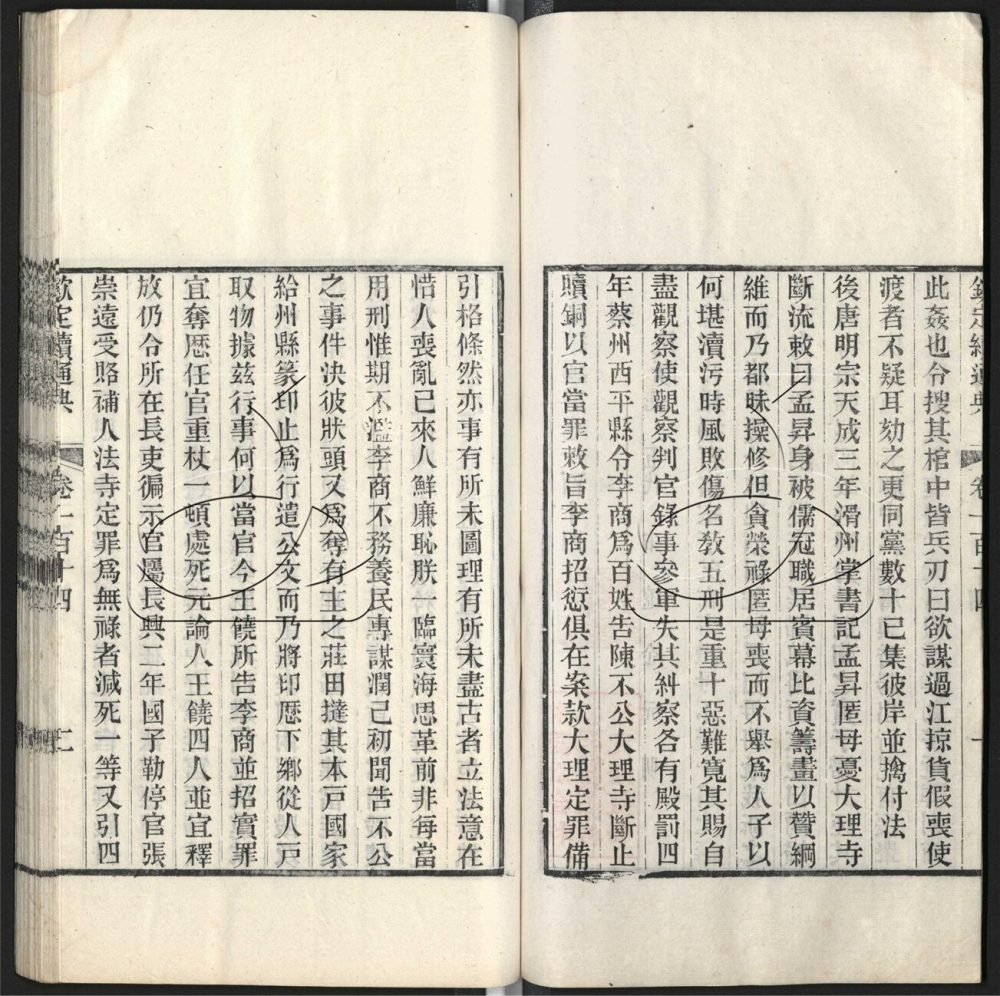 欽定續通典 卷一百十四 一
此姦也令搜其棺中皆兵刃曰欲謀過江掠貨假喪使
渡者不疑耳劾之更同黨數十已集彼岸並擒付法
後唐明宗天成三年滑州掌書記孟昇匿母憂大理寺
斷流敕曰孟昇身被儒冠職居賓幕比資籌畫以贊綱
維而乃都昧操修但貪榮祿匿母喪而不舉爲人子以
何堪瀆污時風敗傷名敎五刑是重十惡難寬其賜自
盡觀察使觀察判官錄事參軍失其糾察各有殿罰四
年蔡州西平縣令李商爲百姓吿陳不公大理寺斷止
贖銅以官當罪敕旨李商招愆俱在案款大理定罪備
引格條然亦事有所未圖理有所未盡古者立法意在
惜人喪亂已來人鮮廉恥朕一臨寰海思革前非每當
用刑惟期不濫李商不務養民專謀潤己初聞吿不公
之事件決彼狀頭又爲奪有主之莊田撻其本戸國家
給州縣篆印止爲行遣公文而乃將印歷下鄉從人戸
取物據茲行事何以當官今王饒所告李商並招實罪
宜奪歷任官重杖一頓處死元論人王饒四人並宜釋
放仍令所在長吏徧示官屬長興二年國子勒停官張
崇遠受賂補人法寺定罪爲無祿者減死一等又引四
欽定續通典 卷一百十四 二